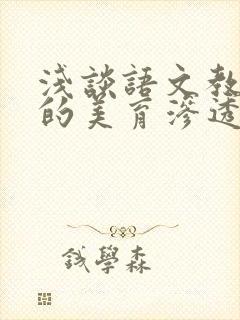 浅談語文教
的美育滲透
錢學森